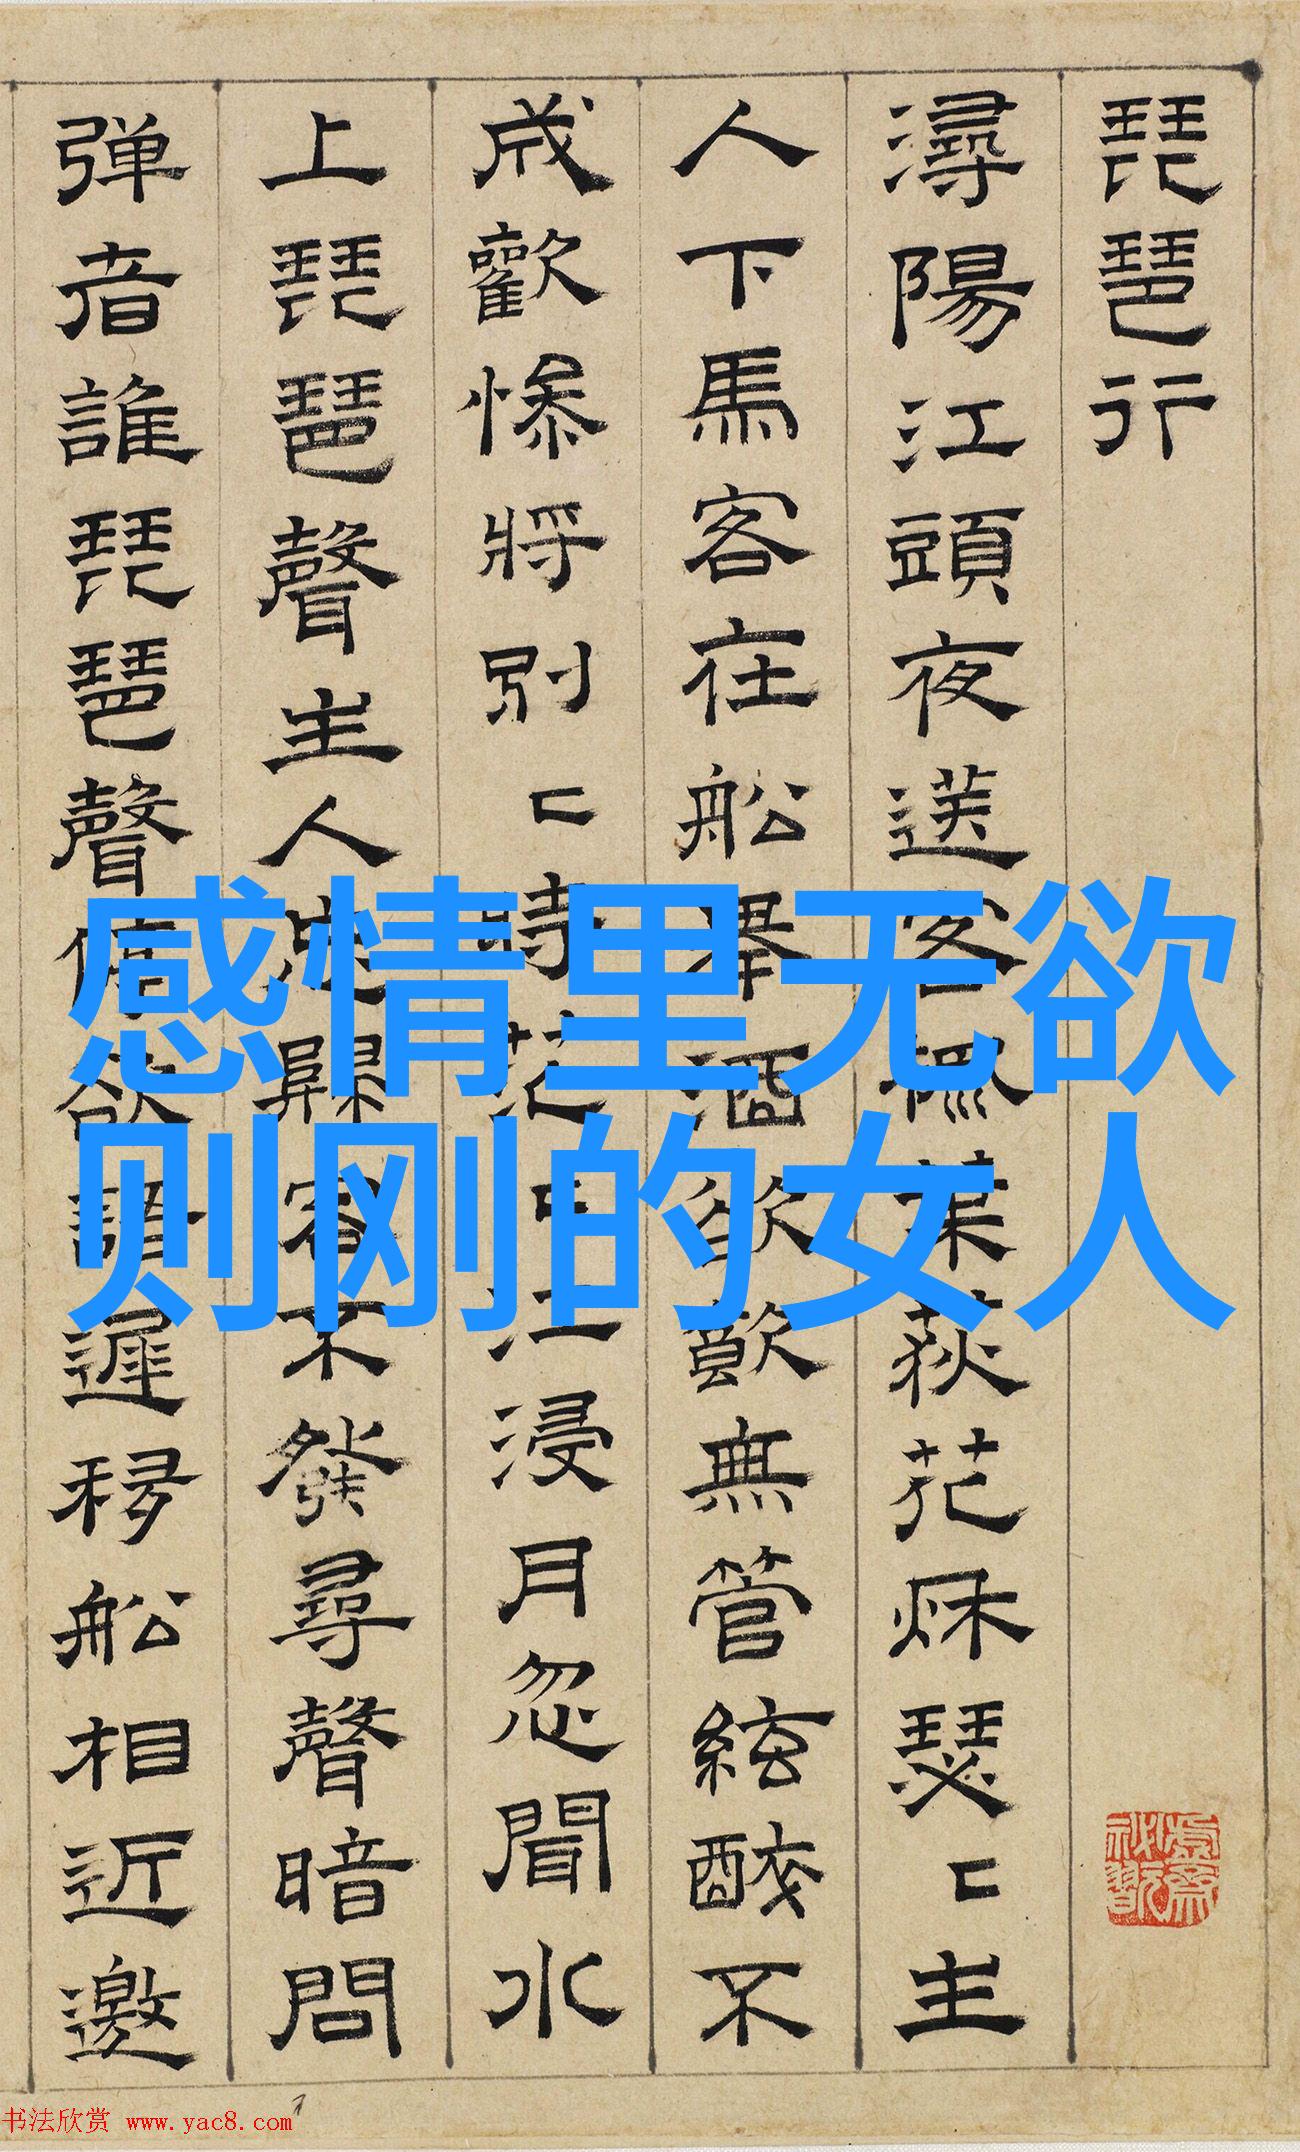 琵琶行
潯陽江頭夜送客楓葉荻花秌瑟〻主
人下馬客在船舉酒欲飲無管絃醉不
成歡慘將別〻時茫〻江浸月忽聞水
上琵琶聲主人忘歸客不發尋聲暗問
弹者誰琵琶聲停欲語遲移船相近邀
感情里无欲
则刚的女人
书法欣赏 www.yac8.com